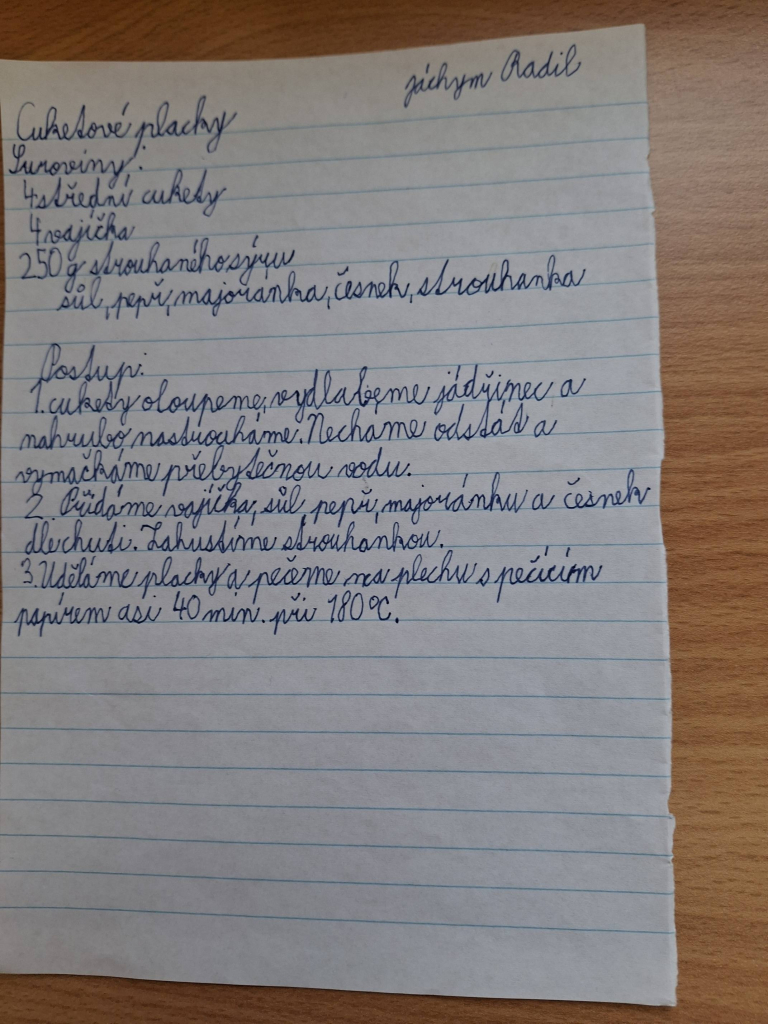 Jáchym Radil
Cuketové placky
Suroviny:
4 střední cukety
4 vajíčka
250 g strouhaného sýru
sůl, pepř, majoránka, česnek, strouhanka
Postup:
1. cukety oloupeme, vydlabeme jádřinec a
nahrubo nastrouháme. Nechame odstát a
vymačkáme přebytečnou vodu.
2. Přidáme vajíčka, sůl, pepř, majoránku a česnek
dle chuti. Zahustíme strouhankou.
3. Uděláme placky a pečeme na plechu s pečícím
papírem asi 40 min. při 180°C.